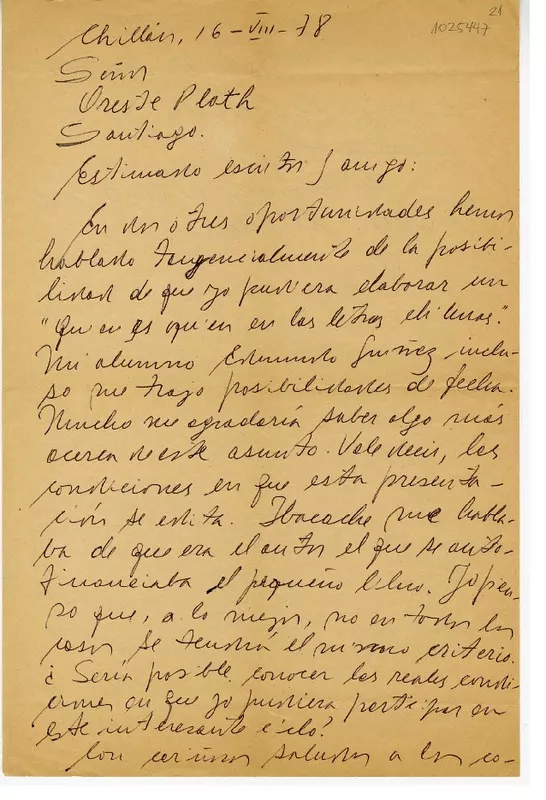 21
1025447
Chillán, 16-VIII-78
Señor
Oreste Plath
Santiago.
Estimado escritor y amigo:
En dos o tres oportunidades hemos
hablado tangencialmente de la posibi-
lidad de que yo pudiera elaborar un
"Quien es quien en las letras chilenas".
Mi alumno Edmundo Guíñez inclu-
so me trajo posibilidades de fecha.
Mucho me agradaría saber algo más
acerca de este asunto. Vale decir, las
condiciones en que esta presenta-
ción se edita. Ibacache me habla-
ba de que era el autor el que se auto-
financiaba el pequeño libro. Yo pien-
so que, a lo mejor, no en todos los
casos se tendrá el mismo criterio.
¿Sería posible conocer las reales condi-
ciones en que yo pudiera participar en
este interesante ciclo?
Con cariñosos saludos a los co-